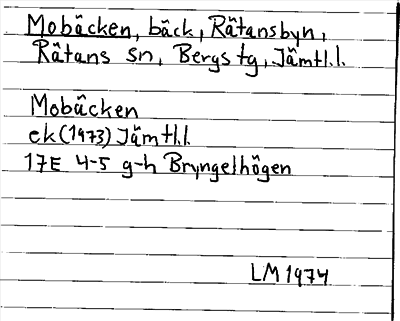 Mobäcken, bäck, Rätansbyn,
Rätans sn, Bergs tg, Jämtl.l.
Mobäcken
ek(1973) Jämtl.l.
17E 4-5 g-h Bryngelhögen
LM 1974